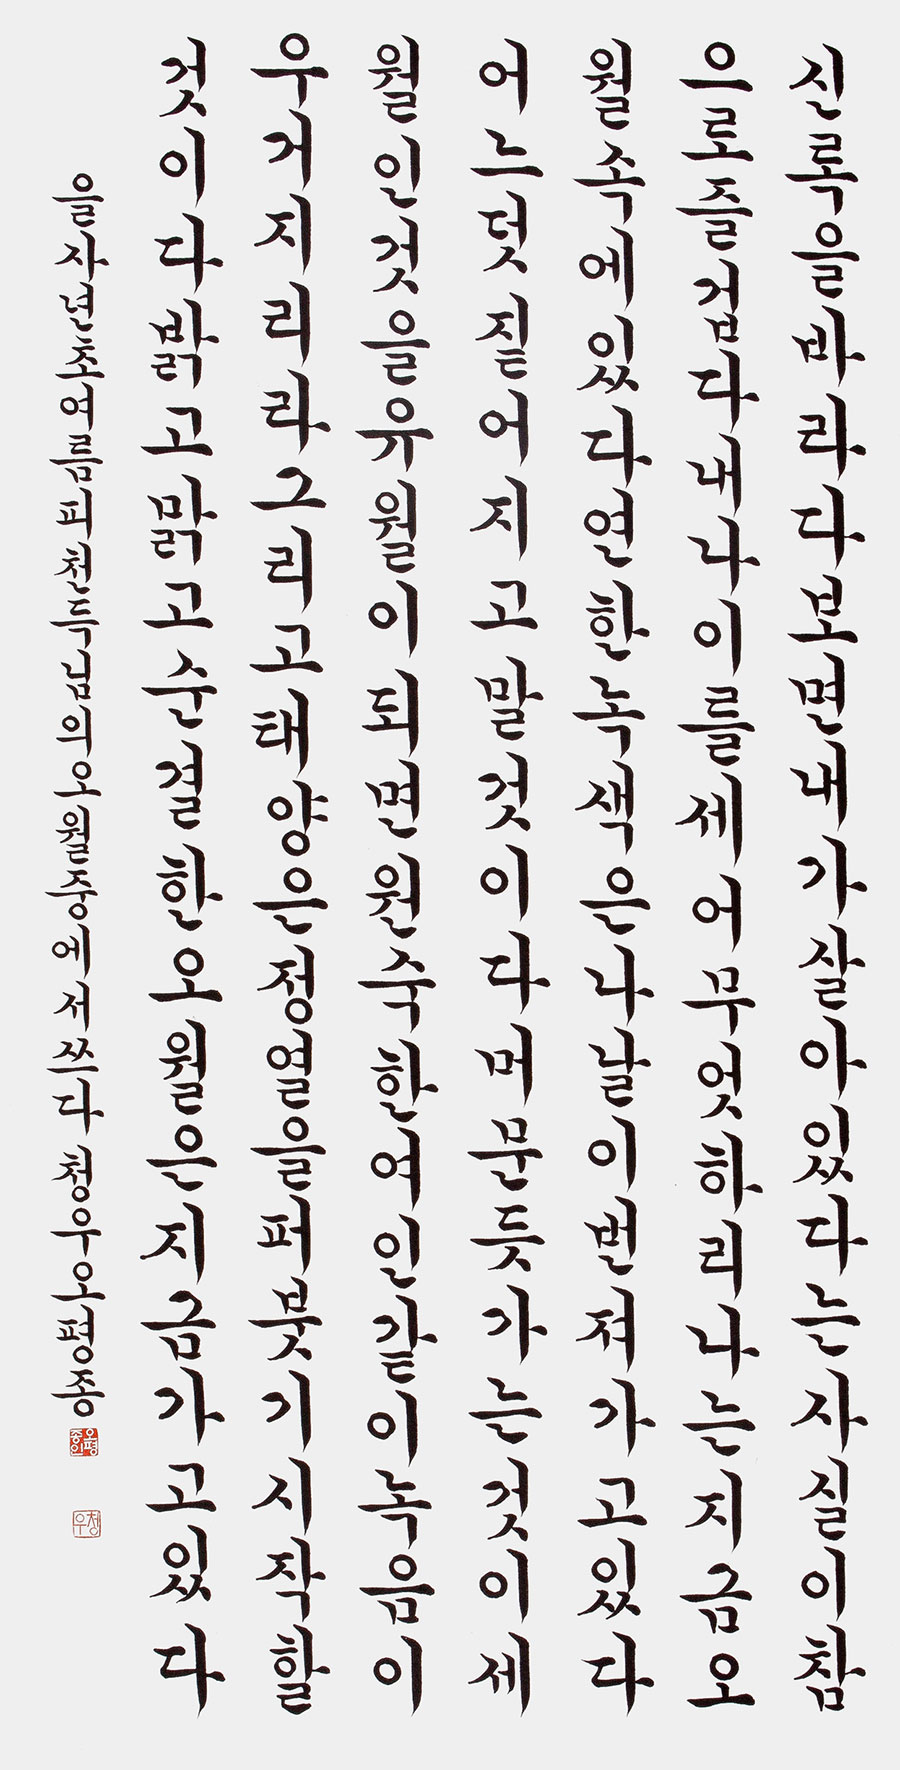 신록을바라다보면내가살아있다는사실이참
으로즐겁다내나이를세어무엇하리나는지금오
월속에있다연한녹색은나날이번져가고있다
어느덧짙어지고말것이다머문듯가는것이세
월인것을유월이되면원숙한여인같이녹음이
우거지리라그리고태양은정열을퍼붓기시작할
것이다밝고맑고순결한오월은지금가고있다
을사년초여름피천득님의오월중에서쓰다 청우오평종
오평종인
청우